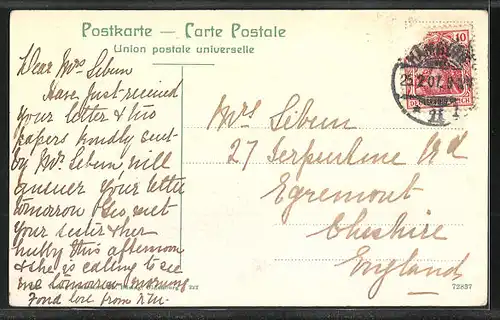 Postkarte — Carte Postale
Union postale universelle
Dear Mrs Sebun
Have just received
your letter & two
papers kindly sent
by Mr Sebun, will
answer your letter
tomorrow met
your sister & her
hubby this afternoon
& she is calling to see
me tomorrow morning
Fond love from
Mrs Sebun
27 Serpentine Rd
Egremont
Cheshire
England
10
25.2.07
72837